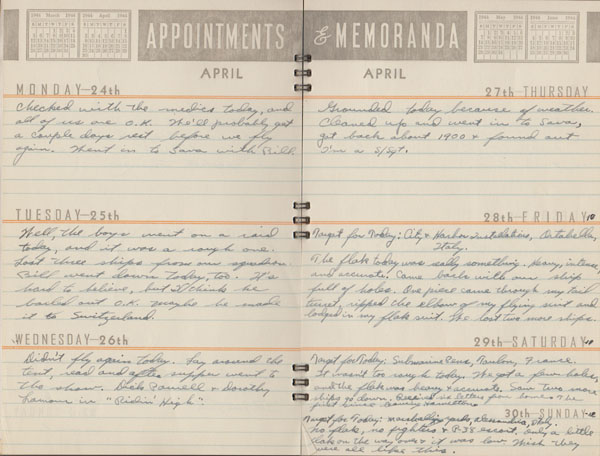 1944 March 1944
1944 April 1944
APPOINTMENTS
& MEMORANDA
1944 May 1944
1944 June 1944
APRIL
MONDAY—24th
Checked with the medics today, and
all of us are O.K. We'll probably get
a couple days rest before we fly
again. Went in to Sava with Bill
TUESDAY—25th
Well, the boys went on a raid
today, and it was a rough one.
Lost three ships from our squadron.
Bill went down today, too. It's
hard to believe, but I think he
bailed out O.K. maybe he made
it to Switzerland.
WEDNESDAY—26th
Didn't fly again today. Lay around the
tent, read and after supper went to
the show. Dick Powell & Dorothy
Lamour in "Ridin' High".
APRIL
27th THURSDAY
Grounded today because of weather.
Cleaned up and went in to Sava,
got back about 1900 & found out
I'm a S/Sgt.
28th—FRIDAY
Target for Today: City & Harbor Installations,
Italy.
The flak today was really something. Heavy, intense,
and accurate. Came back with our ship
full of holes. One piece came through my tail
turret, ripped the elbow of my flying suit and
lodged in my flak suit. We lost two more ships.
29th—SATURDAY
Target for Today: Submarine Pens, Toulon, France.
It wasn't too rough today. We got a few holes,
and the flak was heavy & accurate. Saw two more
ships go down. Received no letters from home. The
first since leaving
30th—SUNDAY
Target for Today: marshalling yards, Alessandria, Italy.
No flak, no fighters & P-38 escort. Only a little
flak on the way over & it was low. Wish they
were all like this.